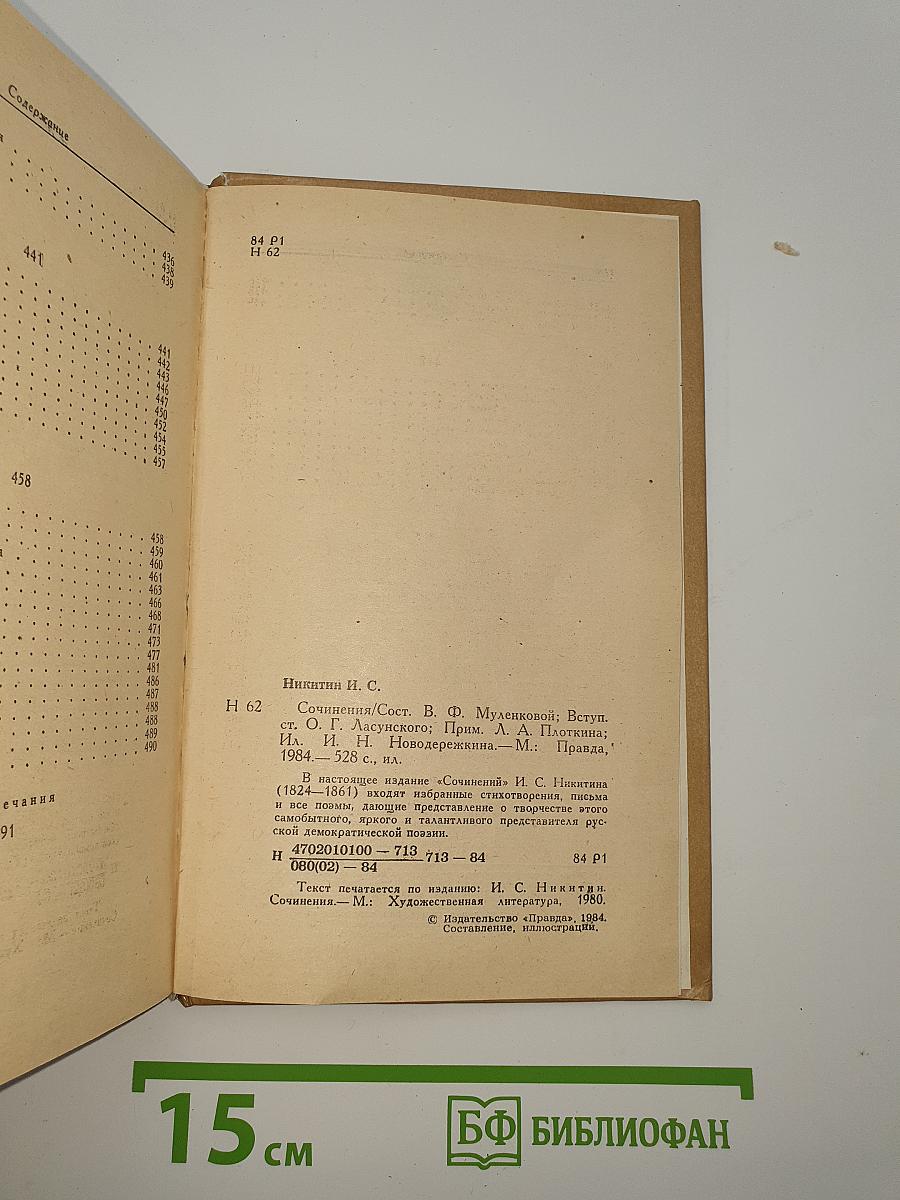 Содержание
436
438
439
441
441
442
443
446
447
450
452
454
455
457
458
458
459
460
461
463
466
468
471
473
477
481
486
487
488
488
489
490
ечания
91
84 Р1
Н 62
Никитин И. С.
Н 62
Сочинения/Сост. В. Ф. Муленковой; Вступ.
ст. О. Г. Ласунского; Прим. Л. А. Плоткина;
Ил. И. Н. Новодережкина.— М.: Правда,
1984.— 528 с., ил.
В настоящее издание «Сочинений» И. С. Никитина
(1824—1861) входят избранные стихотворения, письма
и все поэмы, дающие представление о творчестве этого
самобытного, яркого и талантливого представителя рус-
ской демократической поэзии.
Н 4702010100 — 713 713 — 84 84 Р1
080(02) — 84
Текст печатается по изданию: И. С. Никитин.
Сочинения.— М.: Художественная литература, 1980.
© Издательство «Правда», 1984.
Составление, иллюстрации.
15 см
БФ БИБЛИОФАН